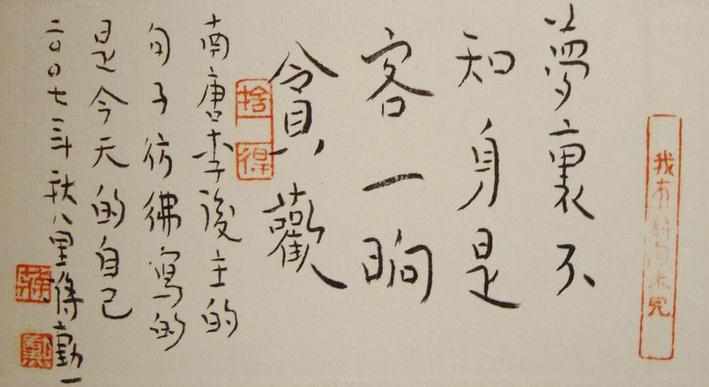 我有未完
夢裏不
知身是
客一晌
貪歡
捨得
南唐李後主的
句子彷彿寫的
是今天的自己
二〇〇七年秋八里蔣勳